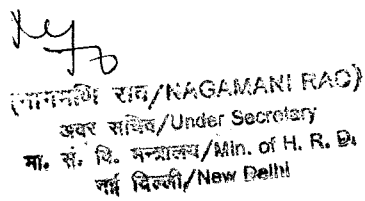 (नागमणि राव/NAGAMANI RAO)
अवर सचिव/Under Secretary
मा. सं. वि. मन्त्रालय/Min. of H. R. D.
नई दिल्ली/New Delhi